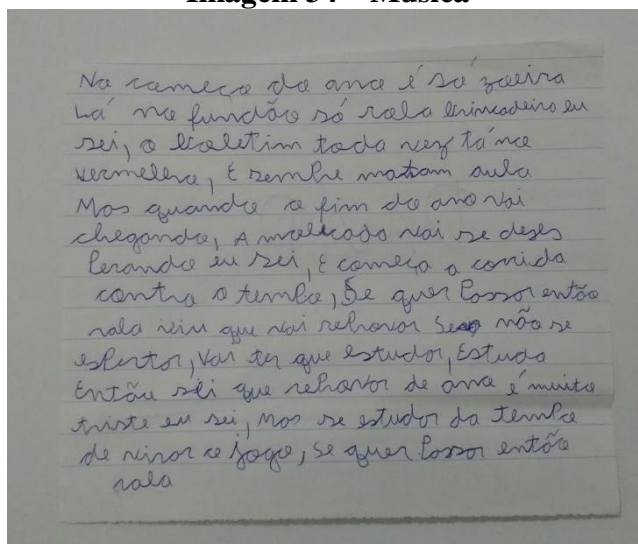 Imagem 34 – Música
No começo do ano é só zoeira
Lá no fundão só rola brincadeira eu
sei, o boletim toda vez tá no
vermelero, E sempre matam aula
Mas quando o fim do ano vai
chegando, A molecada vai se deses
perando eu sei, E começa a corrida
contra o tempo, Se quer Passar então
rala viu que vai reprovar Se não se
espertar, Vai ter que estudar, Estuda
Então sei que reprovar de ano é muito
triste eu sei, Mas se estudar da tempo
de virar o jogo, Se quer Passar então
rala